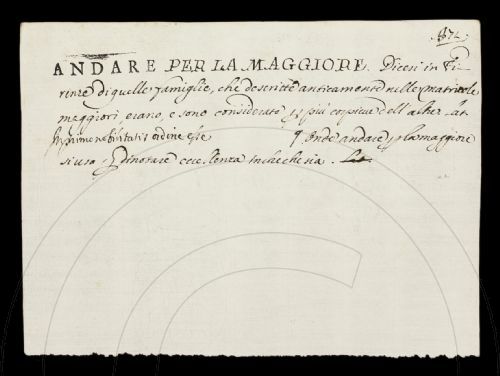 ANDARE PER LA MAGGIORE. Dicesi in Fi-
renze di quelle famiglie, che descritte anticamente nelle matricole
maggiori, erano, e sono considerate più cospicue dell'altre. Lat.
in primo nobilitatis ordine esse Onde andare p la maggiore
si usa p dinotare eccellenza in che che sia. Lat.